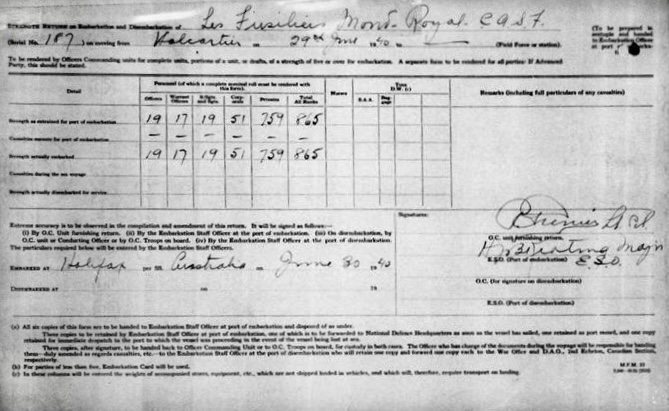 STRENGTH RETURN on Embarkation and Disembarkation of Les Fusiliers Mont-Royal C A S F
(Serial No. 187) on moving from Valcartier on 29th June 1940 to (Field Force or station).
(To be prepared in and handed to Embarkation Officer at port of
To be rendered by Officers Commanding units for complete units, portions of a unit, or drafts, of a strength of five or more for embarkation. A separate form to be rendered for all parties: If Advanced Party, this should be stated.
Detail
Personnel (of which a complete nominal roll must be rendered with this form).
Officers Warrant Officers S/Sgts. and Sgts. Privates Total All Ranks
Horses
Remarks (including full particulars of any casualties)
Strength as entrained for port of embarkation 19 17 19 51 759 865
Casualties enroute for port of embarkation — — — — — —
Strength actually embarked 19 17 19 51 759 865
Casualties during the sea voyage
Strength actually disembarked for service
Extreme accuracy is to be observed in the compilation and amendment of this return. It will be signed as follows:—
(i) By O.C. Unit furnishing return. (ii) By the Embarkation Staff Officer at the port of embarkation. (iii) On disembarkation, by O.C. unit or Conducting Officer or by O.C. Troops on board. (iv) By the Embarkation Staff Officer at the port of disembarkation.
The particulars required below will be entered by the Embarkation Staff Officer.
EMBARKED AT Halifax per SS. Australia on June 30 1940
DISEMBARKED AT on 19
Signatures:
O.C. unit furnishing return.
Major
E.S.O. (Port of embarkation)
E.S.O.
O.C. (for signature on disembarkation)
E.S.O. (Port of disembarkation)
(a) All six copies of this form are to be handed to Embarkation Staff Officer at port of embarkation and disposed of as under.
Three copies to be retained by Embarkation Staff Officer at port of embarkation, one of which is to be forwarded to National Defence Headquarters as soon as the vessel has sailed, one retained as port record, and one copy retained for immediate despatch to the port to which the vessel was proceeding in the event of the vessel being lost at sea.
Three copies, after signature, to be handed back to Officer Commanding Unit or to O.C. Troops on board, for custody in both cases. The Officer who has charge of the documents during the voyage will be responsible for handing them—duly amended as regards casualties, etc.—to the Embarkation Staff Officer at the port of disembarkation who will retain one copy and forward one copy each to the War Office and D.A.G., 2nd Echelon, Canadian Section, respectively.
(b) For parties of less than five, Embarkation Card will be used.
(c) In these columns will be entered the weights of accompanied stores, equipment, etc., which are not shipped loaded in vehicles, and which will, therefore, require transport on landing.